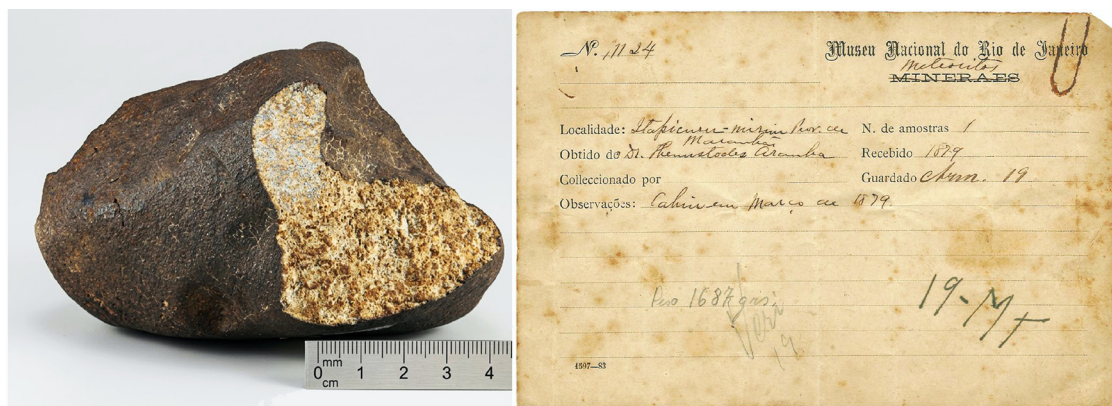 mm
0 1 2 3 4
cm
N. 1124
Museu Nacional do Rio de Janeiro
Meteoritos
MINERAES
Localidade: Itapicuru-mirim Prov. de
Maranhão
N. de amostras 1
Obtido de Dr. Themistocles Aranha
Recebido 1879
Colleccionado por
Guardado Arm. 19
Observações: Cahiu em Março de 1879
Peso 1687 grs.
19-M
4597—83